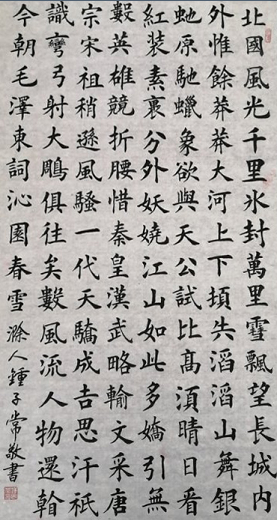 北國風光千里氷封萬里雪飄望長城內
外惟餘莽莽大河上下頓失滔滔山舞銀
虵原馳蠟象欲與天公試比高須晴日看
紅裝素裹分外妖嬈江山如此多嬌引無
數英雄競折腰惜秦皇漢武略輸文采唐
宗宋祖稍遜風騷一代天驕成吉思汗祇
識彎弓射大鵰俱往矣數風流人物還翰
今朝毛澤東詞沁園春雪 滁人鍾子常敬書